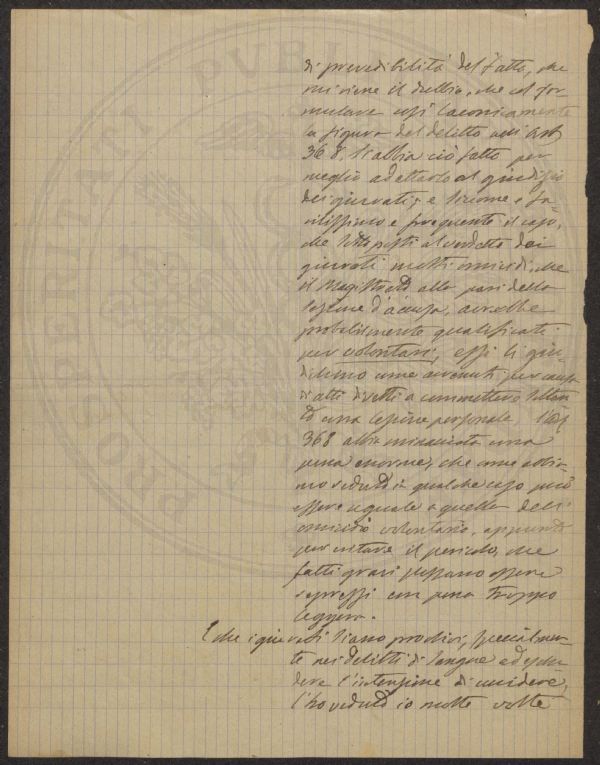 di prevedibilità del fatto, che
mi viene il dubbio, che col for
mulare così laconicamente
la figura del delitto nell'art
368, s'abbia ciò fatto per
meglio adattarlo al giudizio
dei giurati; e siccome è fa-
cilissimo e frequente il caso,
che sottoposti al verdetto dei
giurati molti omicidi, che
il Magistrato alla pari della
sezione d'accusa, avrebbe
probabilmente qualificati
per volontari, essi li giu-
dichino come avvenuti per causa
di atti diretti a commettere soltan
to una lesione personale, l'art
368 abbia minacciata una
pena enorme, che come abbia-
mo veduto in qualche caso può
essere uguale a quella dell'
omicidio volontario, appunto
per evitare il pericolo, che
fatti gravi possano essere
repressi con pena troppo
leggera.
E che i giurati siano proclivi, specialmen-
te nei delitti di sangue ad esclu
dere l'intenzione di uccidere,
l'ho veduto io molte volte